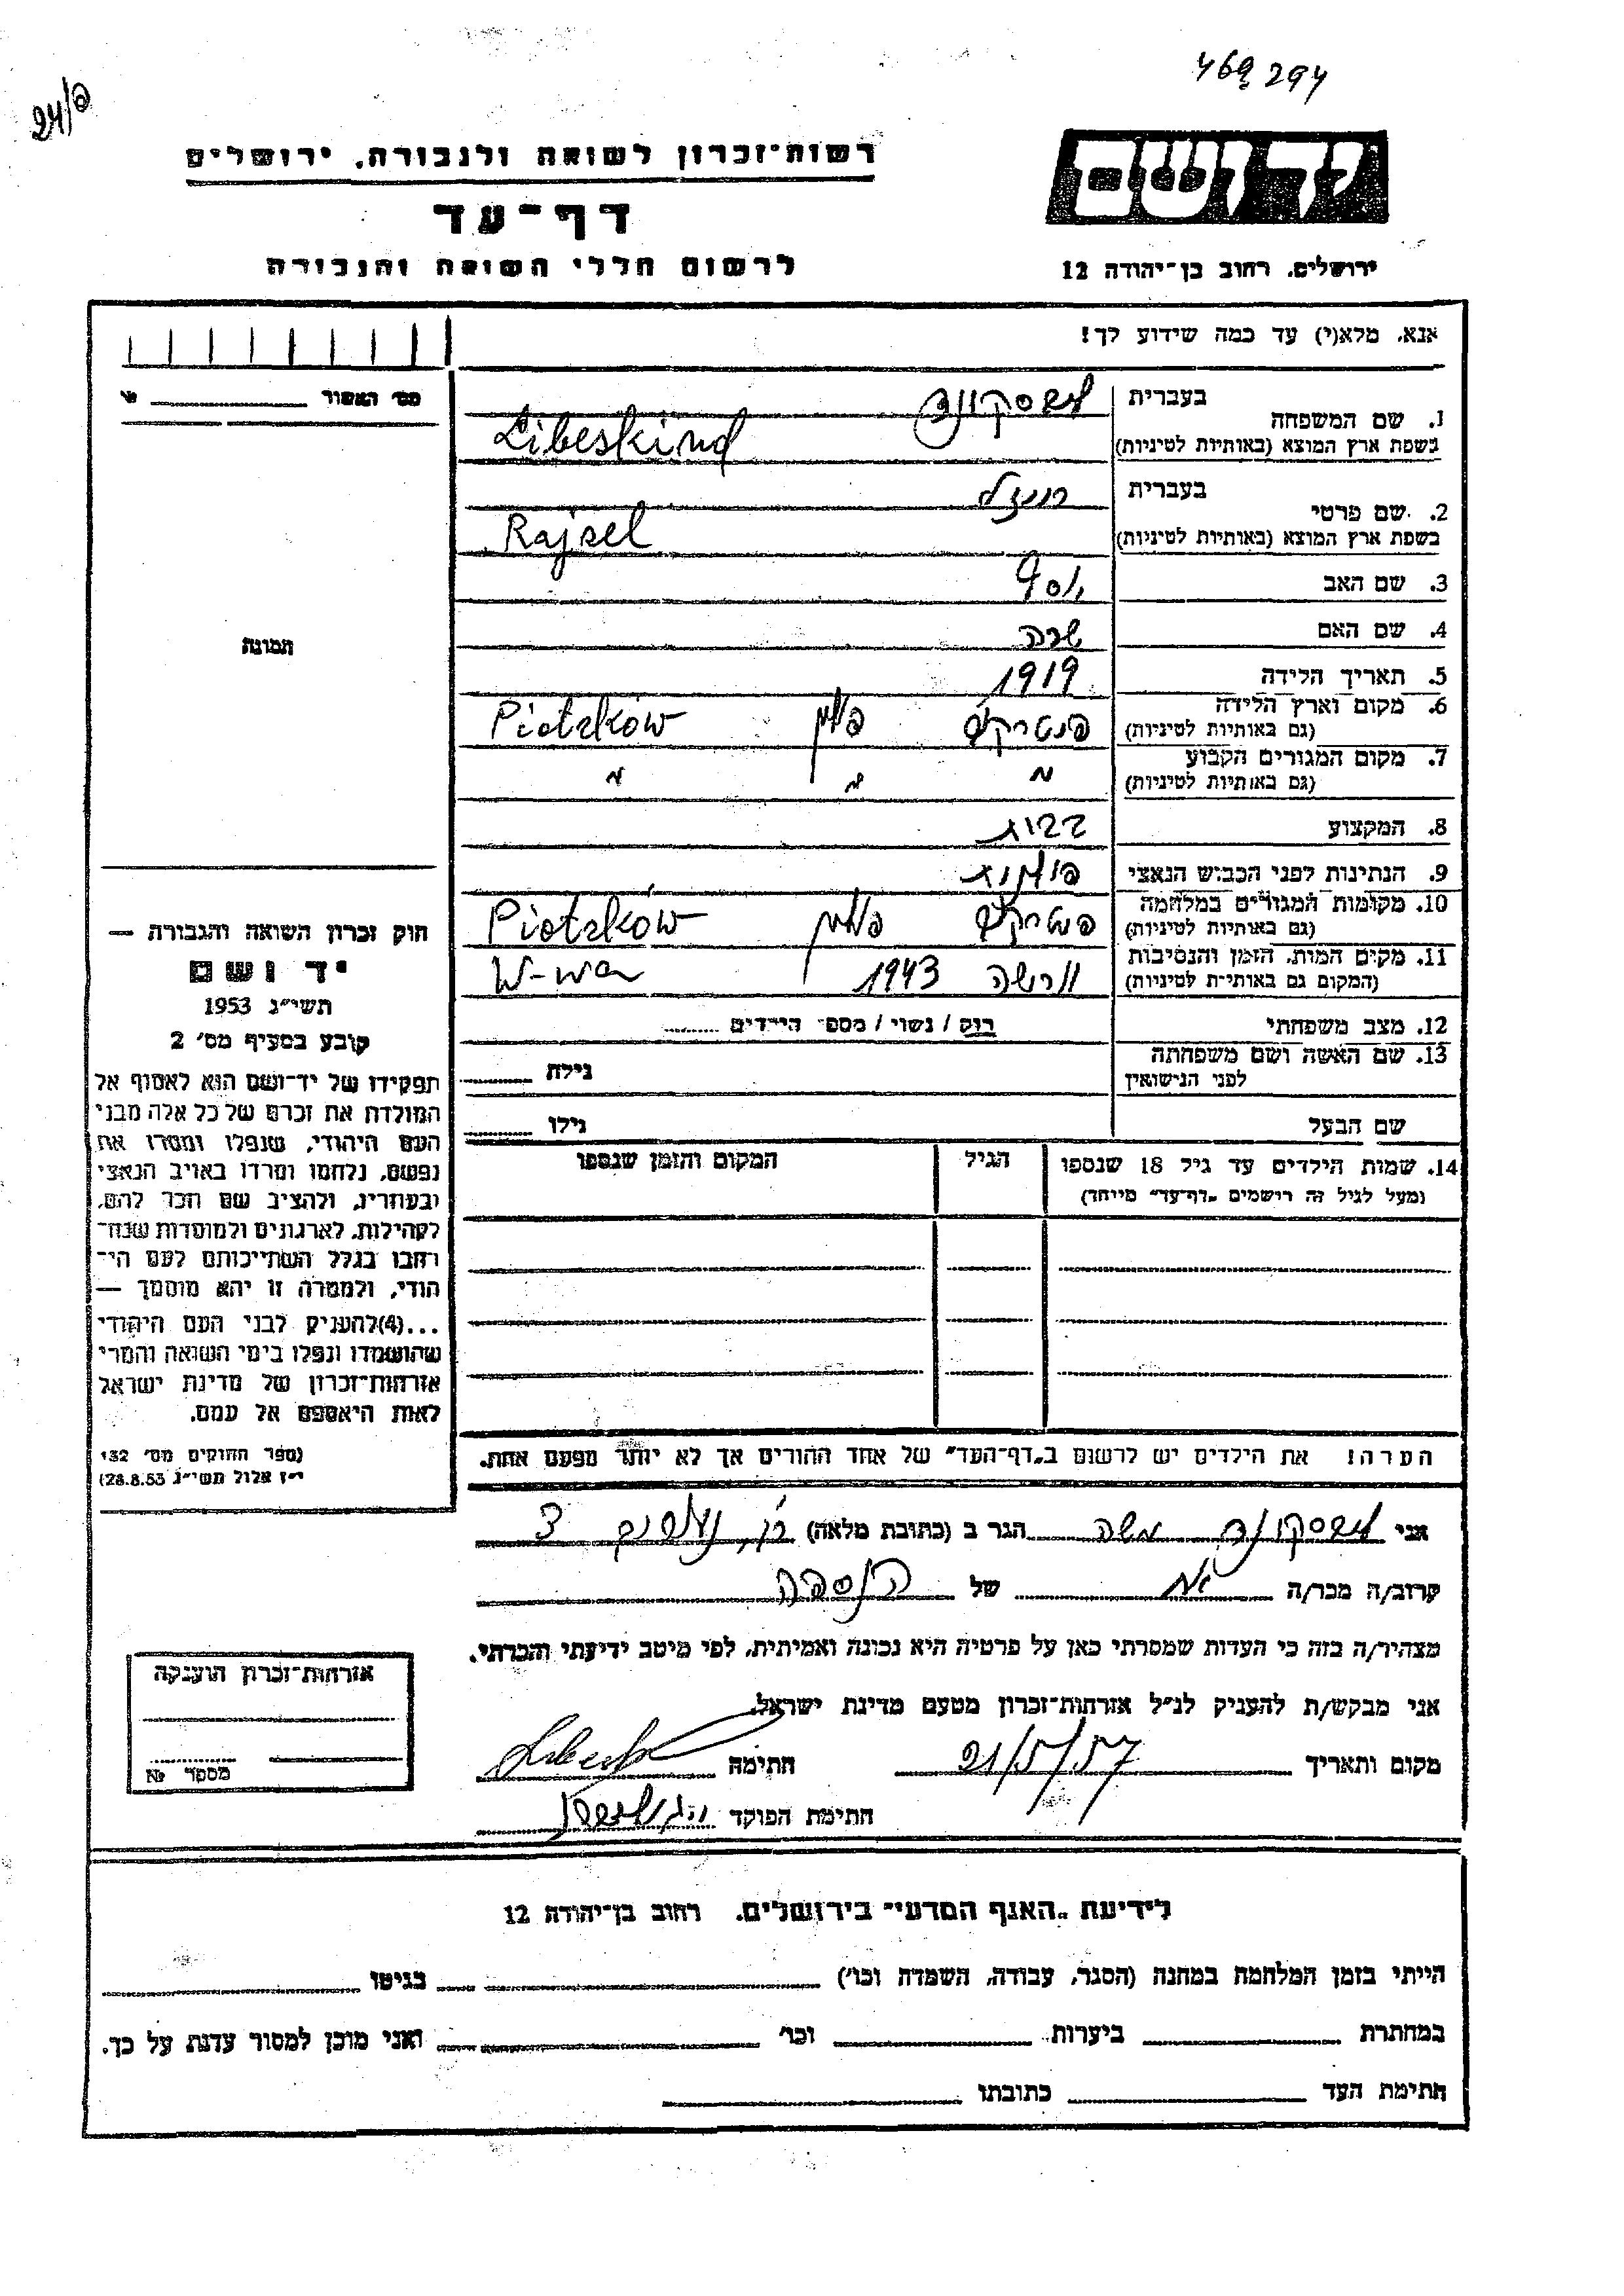 469 294
24/פ
יד ושם
רשות־זכרון לשואה ולגבורה, ירושלים
דף־עד
לרשום חללי השואה והגבורה
ירושלים, רחוב בן־יהודה 12
אנא, מלא(י) עד כמה שידוע לך!
מס' האשור
תמונה
1. שם המשפחה
בעברית ליבסקינד
בשפת ארץ המוצא (באותיות לטיניות) Libeskind
2. שם פרטי
בעברית רייזל
בשפת ארץ המוצא (באותיות לטיניות) Rajsel
3. שם האב יוסף
4. שם האם שרה
5. תאריך הלידה 1919
6. מקום וארץ הלידה (גם באותיות לטיניות) פיוטרקוב פולין Piotrków
7. מקום המגורים הקבוע (גם באותיות לטיניות) " " "
8. המקצוע
9. הנתינות לפני הכבוש הנאצי פולנית
10. מקומות המגורים במלחמה (גם באותיות לטיניות) פיוטרקוב פולין Piotrków
11. מקום המות, הזמן והנסיבות (המקום גם באותיות לטיניות) וורשה 1943 W-wa
12. מצב משפחתי רווק / נשוי / מספר הילדים
13. שם האשה ושם משפחתה לפני הנישואין גילה
שם הבעל גילו
14. שמות הילדים עד גיל 18 שנספו (מעל לגיל זה רישמים „דף־עד״ מיוחד) הגיל המקום והזמן שנספו
הערה! את הילדים יש לרשום ב„דף־העד״ של אחד ההורים אך לא יותר מפעם אחת.
חוק זכרון השואה והגבורה —
יד ושם
תשי״ג 1953
קובע בסעיף מס' 2
תפקידו של יד־ושם הוא לאסוף אל
המולדת את זכרם של כל אלה מבני
העם היהודי, שנפלו ומסרו את
נפשם, נלחמו ומרדו באויב הנאצי
ובעוזריו, ולהציב שם וזכר להם,
לקהילות, לארגונים ולמוסדות שנח־
רבו בגלל השתייכותם לעם הי־
הודי, ולמטרה זו יהא מוסמך —
...(4)להעניק לבני העם היהודי
שהושמדו ונפלו בימי השואה והמרי
אזרחות־זכרון של מדינת ישראל
לאות היאספם אל עמם.
(ספר החוקים מס' 132
י״ז אלול תשי״ג 28.8.53)
אני ליבסקינד משה הגר ב (כתובת מלאה)
קרוב/ה מכר/ה אח של הנספה
מצהיר/ה בזה כי העדות שמסרתי כאן על פרטיה היא נכונה ואמיתית, לפי מיטב ידיעתי והכרתי.
אני מבקש/ת להעניק לנ״ל אזרחות־זכרון מטעם מדינת ישראל.
מקום ותאריך 21/5/57 חתימה
חתימת הפוקד
אזרחות־זכרון הוענקה
מספר №
לידיעת „האגף המדעי״ בירושלים, רחוב בן־יהודה 12
הייתי בזמן המלחמה במחנה (הסגר, עבודה, השמדה וכו') בגיטו
במחתרת ביערות וכו' ואני מוכן למסור עדות על כך.
חתימת העד כתובתו